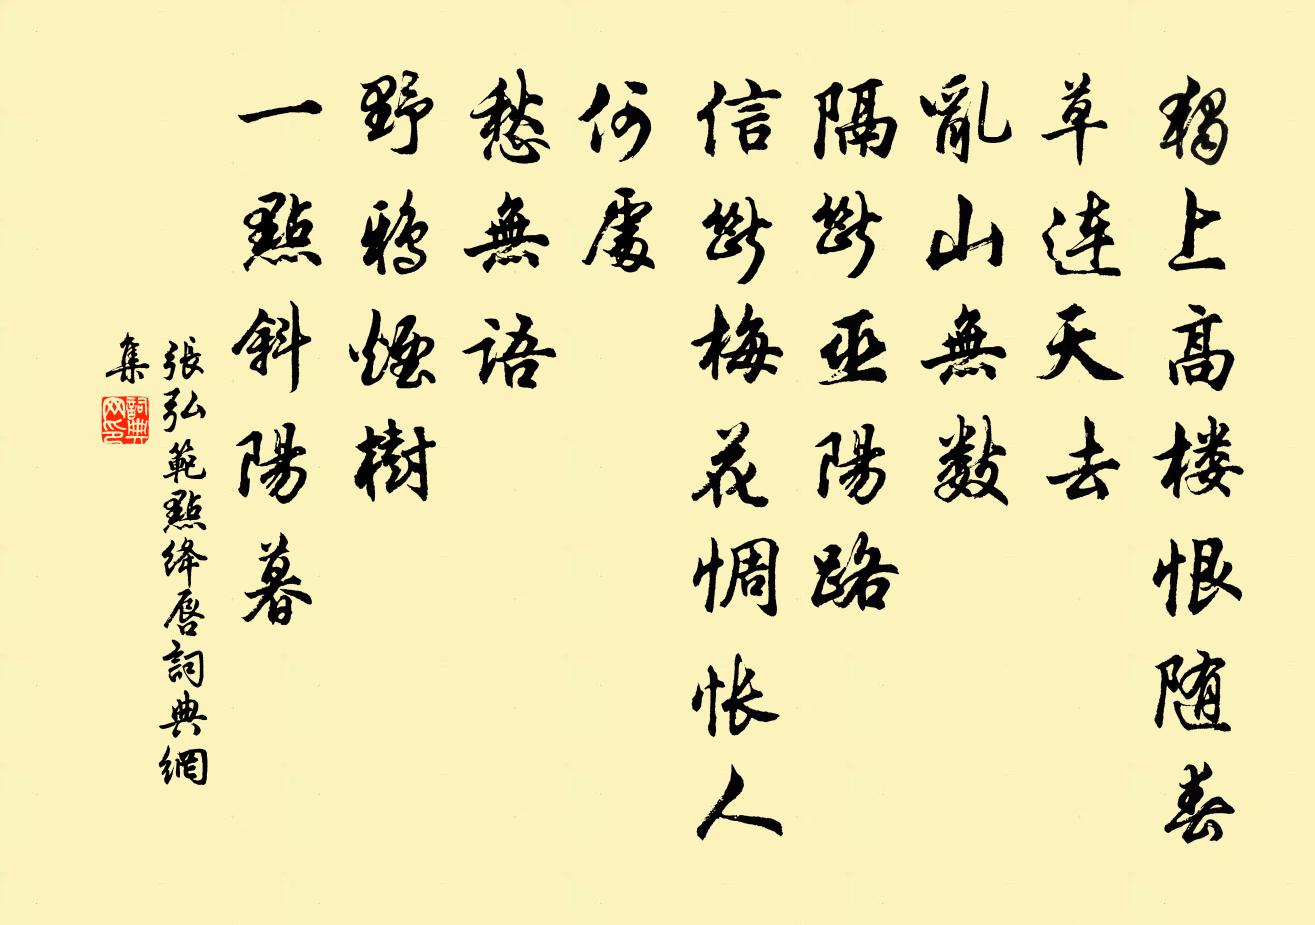 獨上高楼恨随春
草連天去
亂山無數
隔斷巫陽路
信斷梅花惆怅人
何處
愁無語
野鴉煙樹
一點斜陽暮
張弘範點絳唇詞典網
集
詞典网印